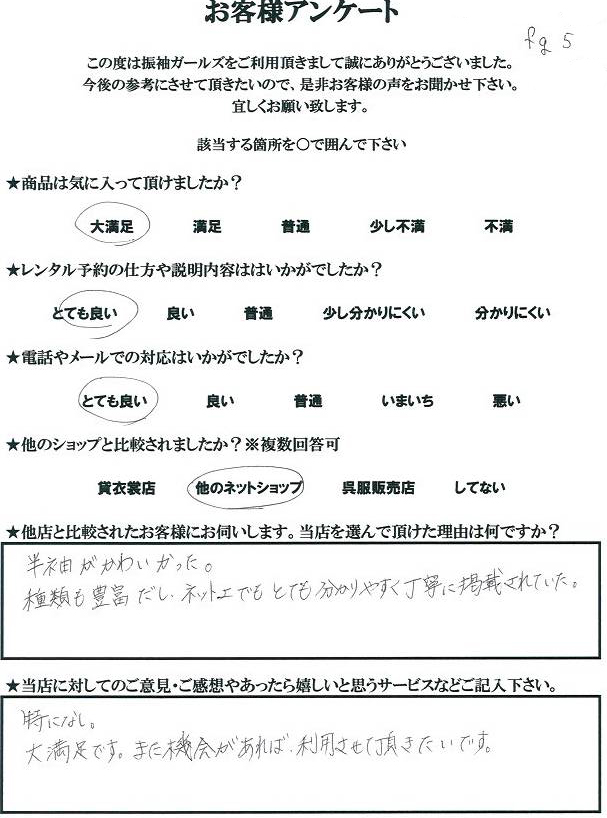 お客様アンケート
fg 5
この度は振袖ガールズをご利用頂きまして誠にありがとうございました。
今後の参考にさせて頂きたいので、是非お客様の声をお聞かせ下さい。
宜しくお願い致します。
該当する箇所を○で囲んで下さい
★商品は気に入って頂けましたか？
大満足 満足 普通 少し不満 不満
★レンタル予約の仕方や説明内容ははいかがでしたか？
とても良い 良い 普通 少し分かりにくい 分かりにくい
★電話やメールでの対応はいかがでしたか？
とても良い 良い 普通 いまいち 悪い
★他のショップと比較されましたか？※複数回答可
貸衣裳店 他のネットショップ 呉服販売店 してない
★他店と比較されたお客様にお伺いします。当店を選んで頂けた理由は何ですか？
半袖がかわいかった。
種類も豊富だし、ネット上でもとても分かりやすく丁寧に掲載されていた。
★当店に対してのご意見・ご感想やあったら嬉しいと思うサービスなどご記入下さい。
特になし。
大満足です。また機会があれば、利用させて頂きたいです。